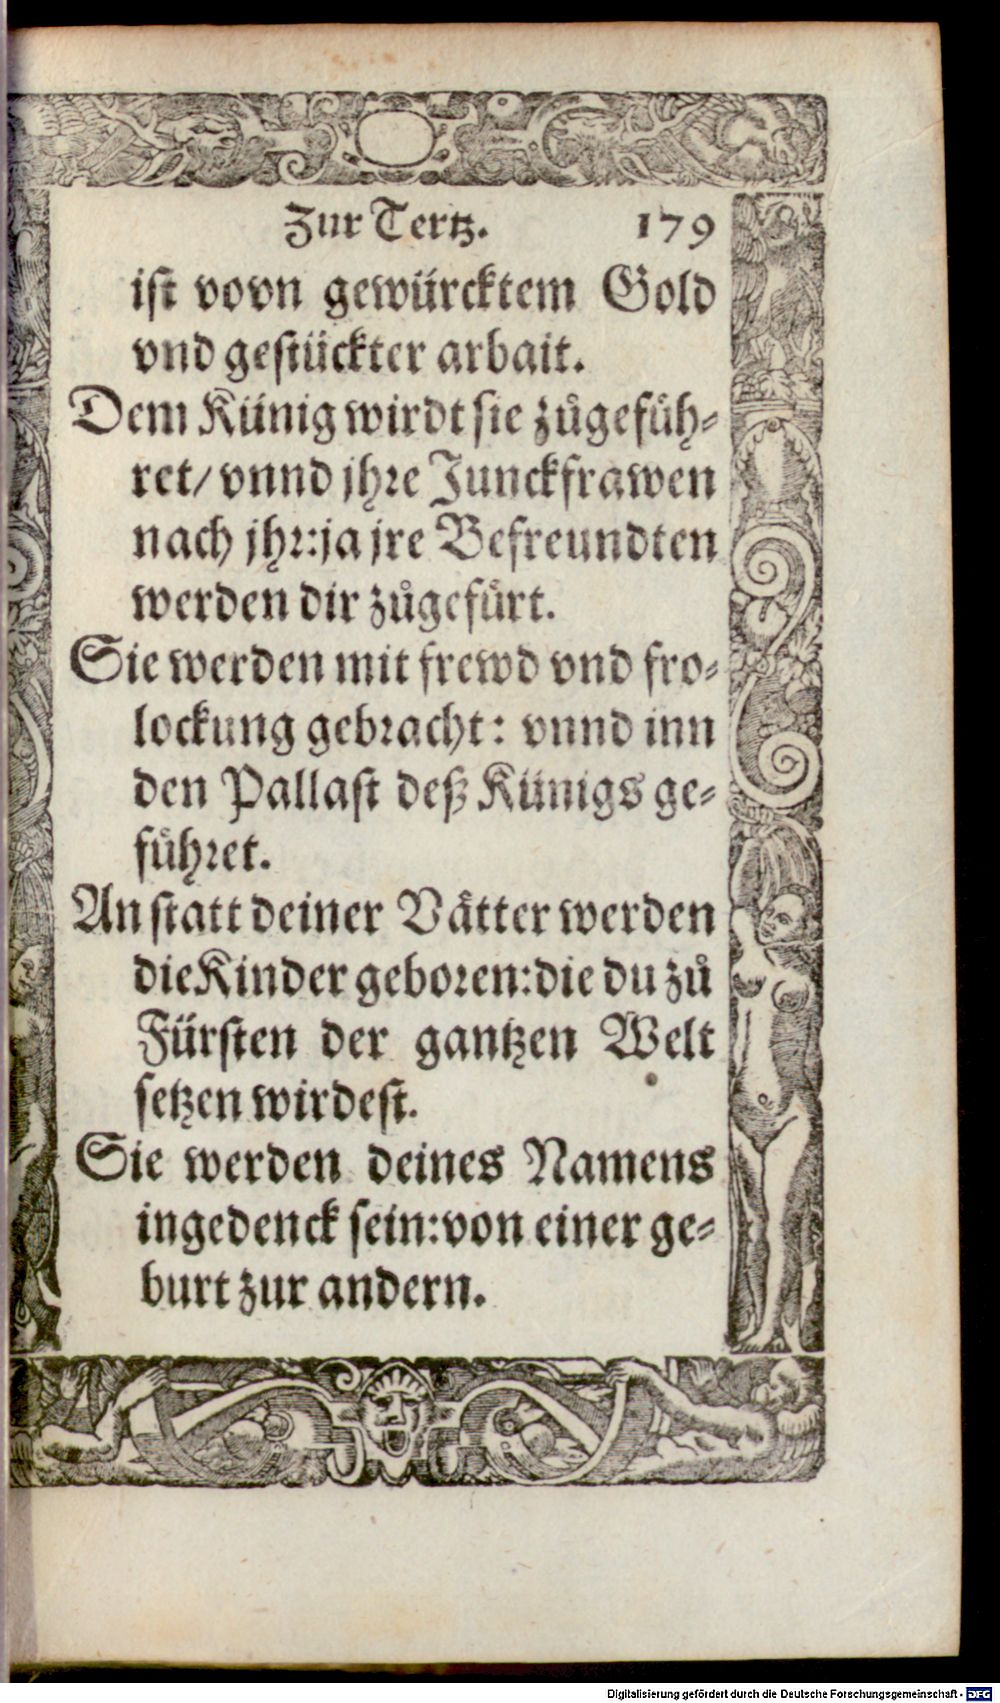 Zur Tertz. 179
ist vovn gewürcktem Gold
vnd gestückter arbait.
Dem Künig wirdt sie zůgefüh⸗
ret/ vnnd jhre Junckfrawen
nach jhr: ja jre Befreundten
werden dir zůgefürt.
Sie werden mit frewd vnd fro⸗
lockung gebracht: vnnd inn
den Pallast deß Künigs ge⸗
führet.
An statt deiner Vätter werden
die Kinder geboren: die du zů
Fürsten der gantzen Welt
setzen wirdest.
Sie werden deines Namens
ingedenck sein: von einer ge⸗
burt zur andern.
Digitalisierung gefördert durch die Deutsche Forschungsgemeinschaft - DFG